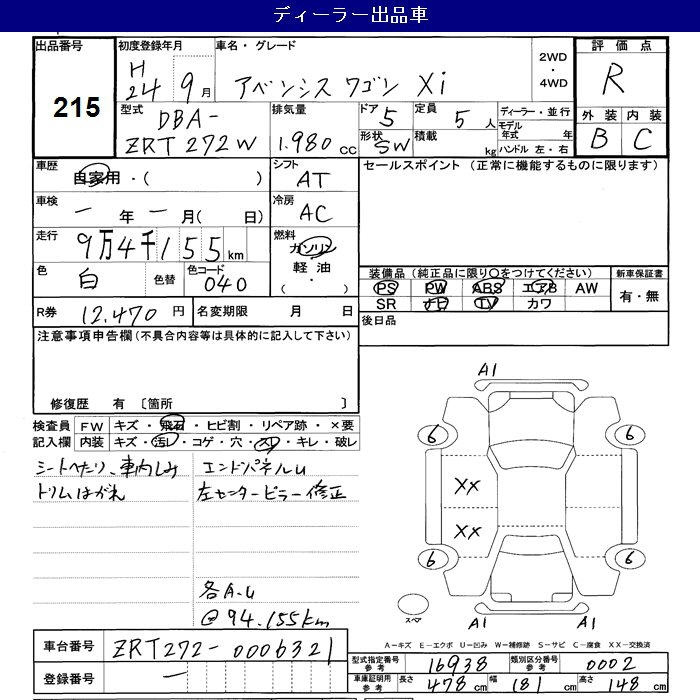 ディーラー出品車
出品番号 初度登録年月 車名・グレード 2WD・4WD 評価点
215
H24 9月 アベンシス ワゴン Xi R
型式 排気量 ドア 定員 ディーラー・並行 外装 内装
DBA-ZRT272W 1.980cc 5 5人 モデル年式 年 B C
形状 積載
SW kg ハンドル 左・右
車歴 自家用・( ) シフト AT セールスポイント (正常に機能するものに限ります)
車検 一年一月( 日) 冷房 AC
走行 9万4千155km 燃料 ガソリン
軽油
・
色 白 色替 色コード 040
装備品(純正品に限り○をつけてください) 新車保証書
PS PW ABS エアB AW 有・無
SR ナビ TV カワ
R券 12,470円 名変期限 月 日 後日品
注意事項申告欄(不具合内容等は具体的に記入して下さい)
修復歴 有 〔箇所 〕
検査員 FW キズ・飛石・ヒビ割・リペア跡・×要
記入欄 内装 キズ・汚レ・コゲ・穴・スレ・キレ・破レ
シートへたり、車内しみ エンドパネルU
トリムはがれ 左センターピラー修正
各A.U
@94.155km
A1
6 6
XX
XX
6 6
スペア A1 A1
A=キズ E=エクボ U=凹み W=補修跡 S=サビ C=腐食 XX=交換済
車台番号 ZRT272-0006321
登録番号 一
型式指定番号 参考 16938 類別区分番号 参考 0002
車庫証明用 参考 長さ 478cm 幅 181cm 高さ 148cm